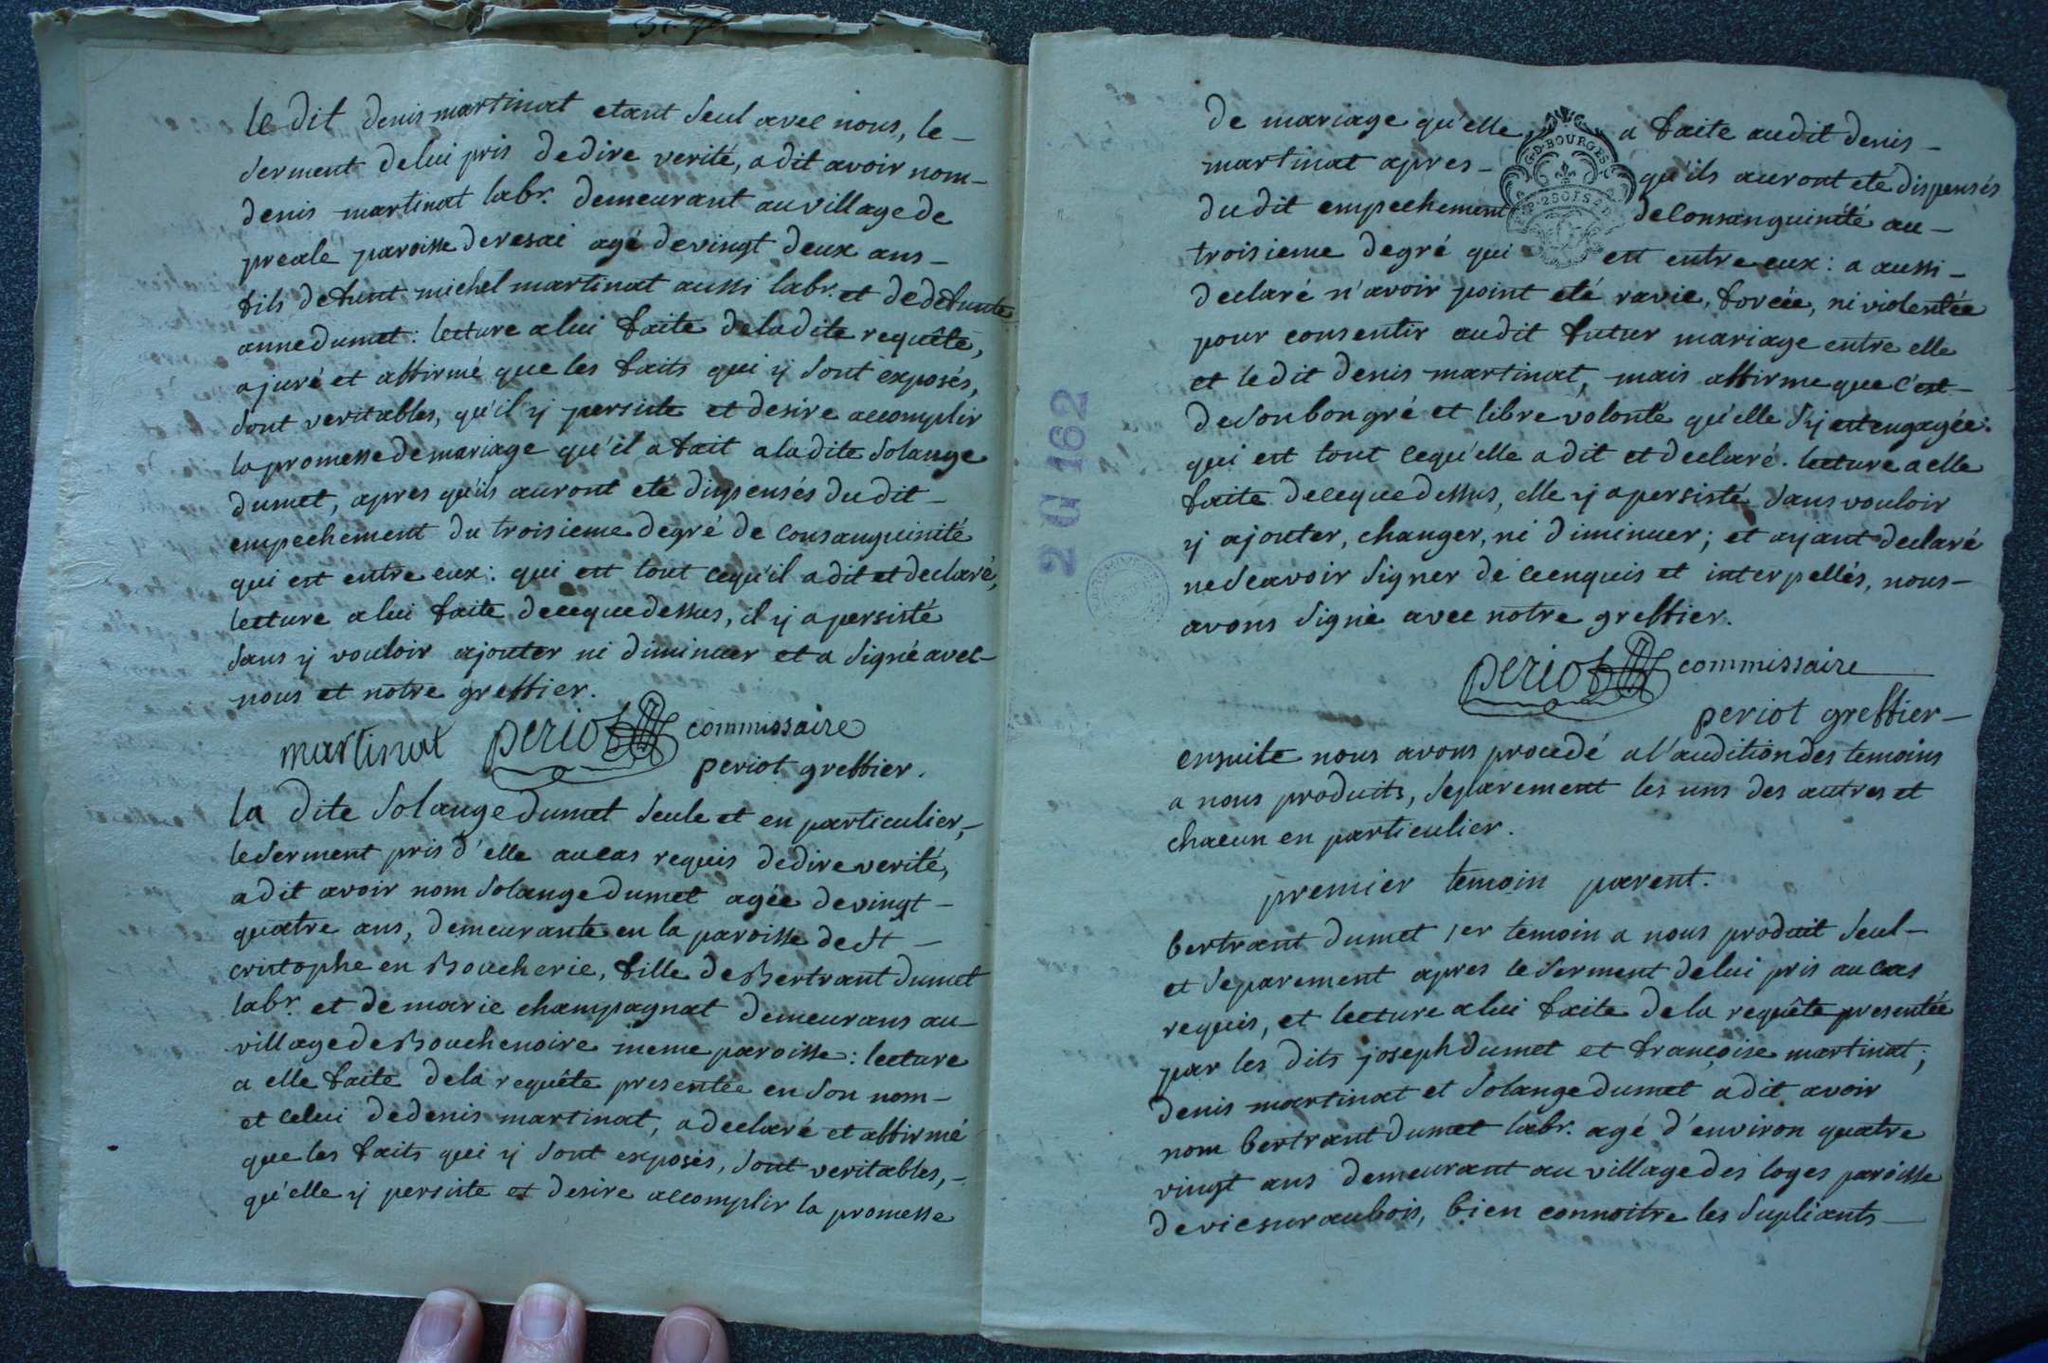 le dit denis martinat etant seul avec nous, le
serment de lui pris de dire verité, a dit avoir nom
denis martinat labr. demeurant au village de
preale paroisse de resai agé de vingt deux ans
fils defunt michel martinat aussi labr. et de defunte
anne dumet : lecture a lui faite de la dite requête,
a juré et affirmé que les faits qui y sont exposés,
sont veritables, qu'il y persiste et desire accomplir
la promesse de mariage qu'il a fait a la dite solange
dumet, apres qu'ils auront eté dispensés du dit
empechement du troisieme degré de consanguinité
qui est entre eux : qui est tout ce qu'il a dit et declaré,
lecture a lui faite de ce que dessus, il y a persisté
sans y vouloir ajouter ni diminuer et a signé avec
nous et notre greffier.
martinat periot commissaire
periot greffier.
la dite solange dumet seule et en particulier,
le serment pris d'elle au cas requis de dire verité,
a dit avoir nom solange dumet agée de vingt
quatre ans, demeurante en la paroisse de st
cristophe en Boucherie, fille de Bertrant dumet
labr. et de marie champagnat demeurans au
village de Bouchenoire meme paroisse : lecture
a elle faite de la requête presentée en son nom
et celui de denis martinat, a declaré et affirmé
que les faits qui y sont exposés, sont veritables,
qu'elle y persiste et desire accomplir la promesse
de mariage qu'elle a faite au dit denis
martinat apres qu'ils auront eté dispensés
du dit empechement de consanguinité au
troisieme degré qui est entre eux : a aussi
declaré n'avoir point eté ravie, forcée, ni violentée
pour consentir au dit futur mariage entre elle
et le dit denis martinat, mais affirme que c'est
de son bon gré et libre volonté qu'elle s'y est engagée :
qui est tout ce qu'elle a dit et declaré. lecture a elle
faite de ce que dessus, elle y a persisté sans vouloir
y ajouter, changer, ni diminuer ; et ayant declaré
ne scavoir signer de ce enquis et interpellés, nous
avons signé avec notre greffier.
periot commissaire
periot greffier
ensuite nous avons procedé a l'audition des temoins
a nous produits, separement les uns des autres et
chacun en particulier.
premier temoin parent.
bertrant dumet 1er temoin a nous produit seul
et separement apres le serment de lui pris au cas
requis, et lecture a lui faite de la requête presentée
par les dits joseph dumet et françoise martinat ;
denis martinat et solange dumet a dit avoir
nom bertrant dumet labr. agé d'environ quatre
vingt ans demeurant au village des loges paroisse
de vic sur aubois, bien connoitre les supliants
G.D. BOURGES
2 G 162